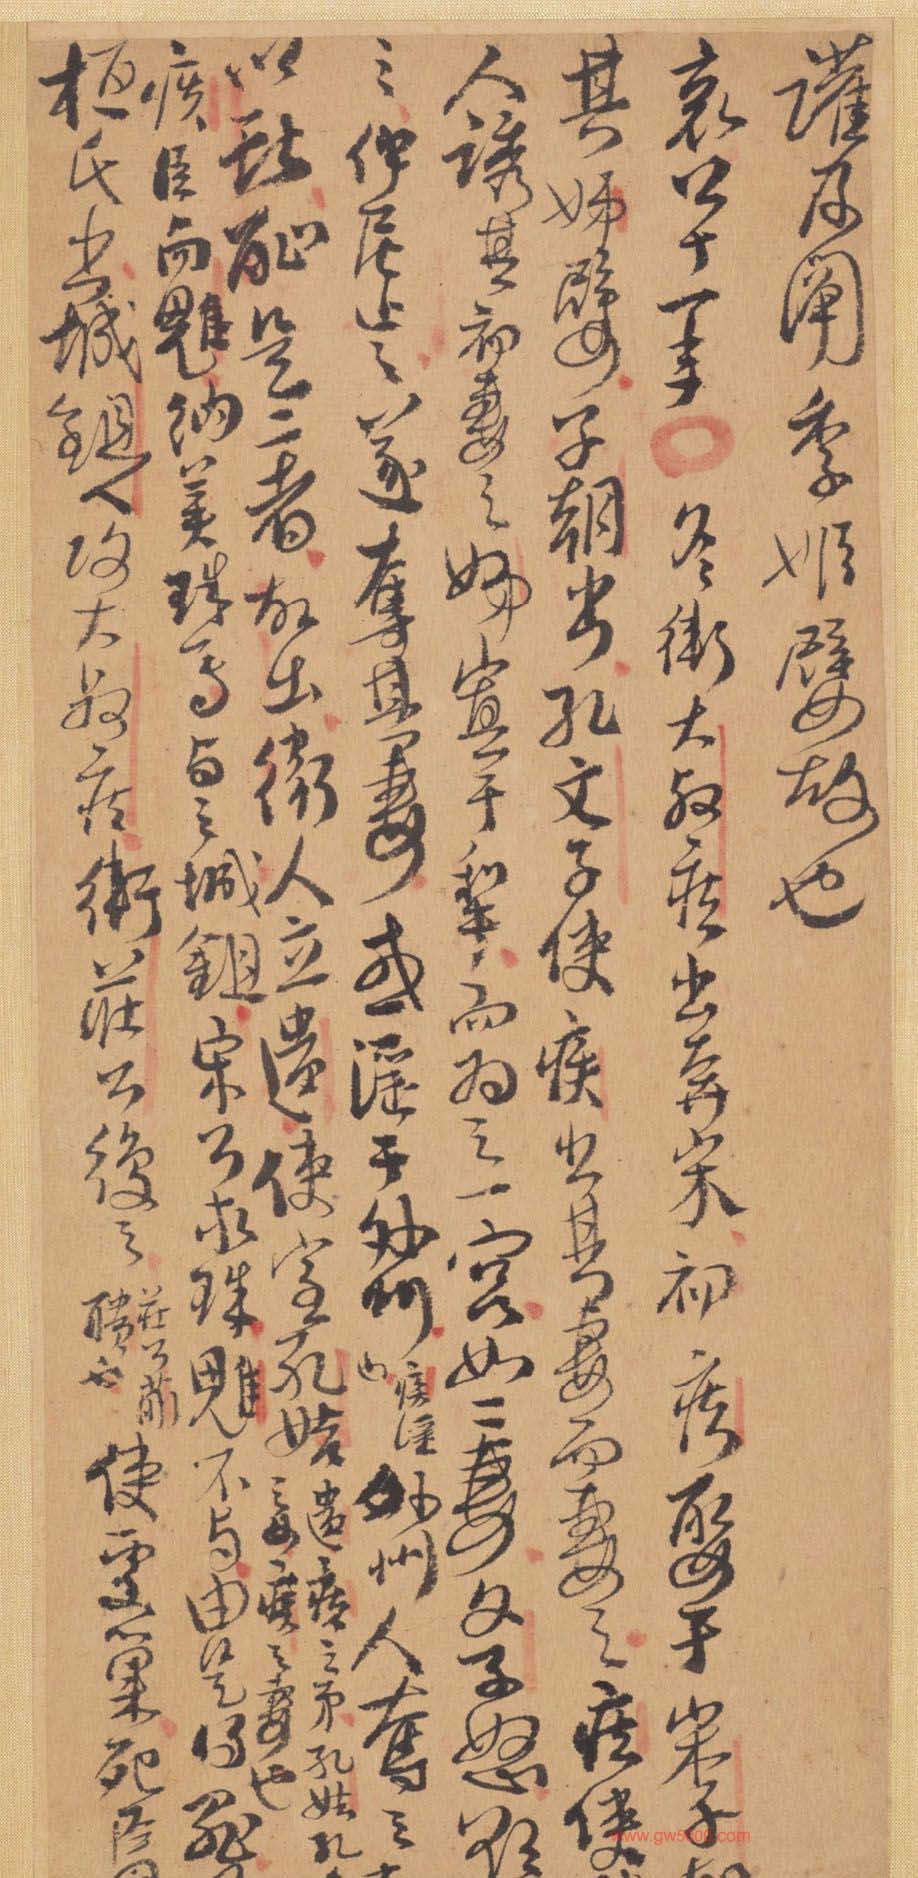 讙及闡季姬嬖故也
哀公十一年冬衛大叔疾出奔宋初疾娶于宋子朝
其娣嬖子朝出孔文子使疾出其妻而妻之疾使
人誘其初妻之娣寘于犁而為之一宮如二妻文子怒欲
之仲尼止之遂奪其妻或淫于外州疾淫外州人奪之
也
以獻恥是二者故出衛人立遺使室孔姞遺疾之弟孔姞孔
之妻疾之妻也
疾臣向魋納美珠焉與之城鉏宋公求珠魋不與由是得罪
桓氏出城鉏人攻大叔疾衛莊公復之莊公蒯
聵也使處巢死
www.gw5100.com